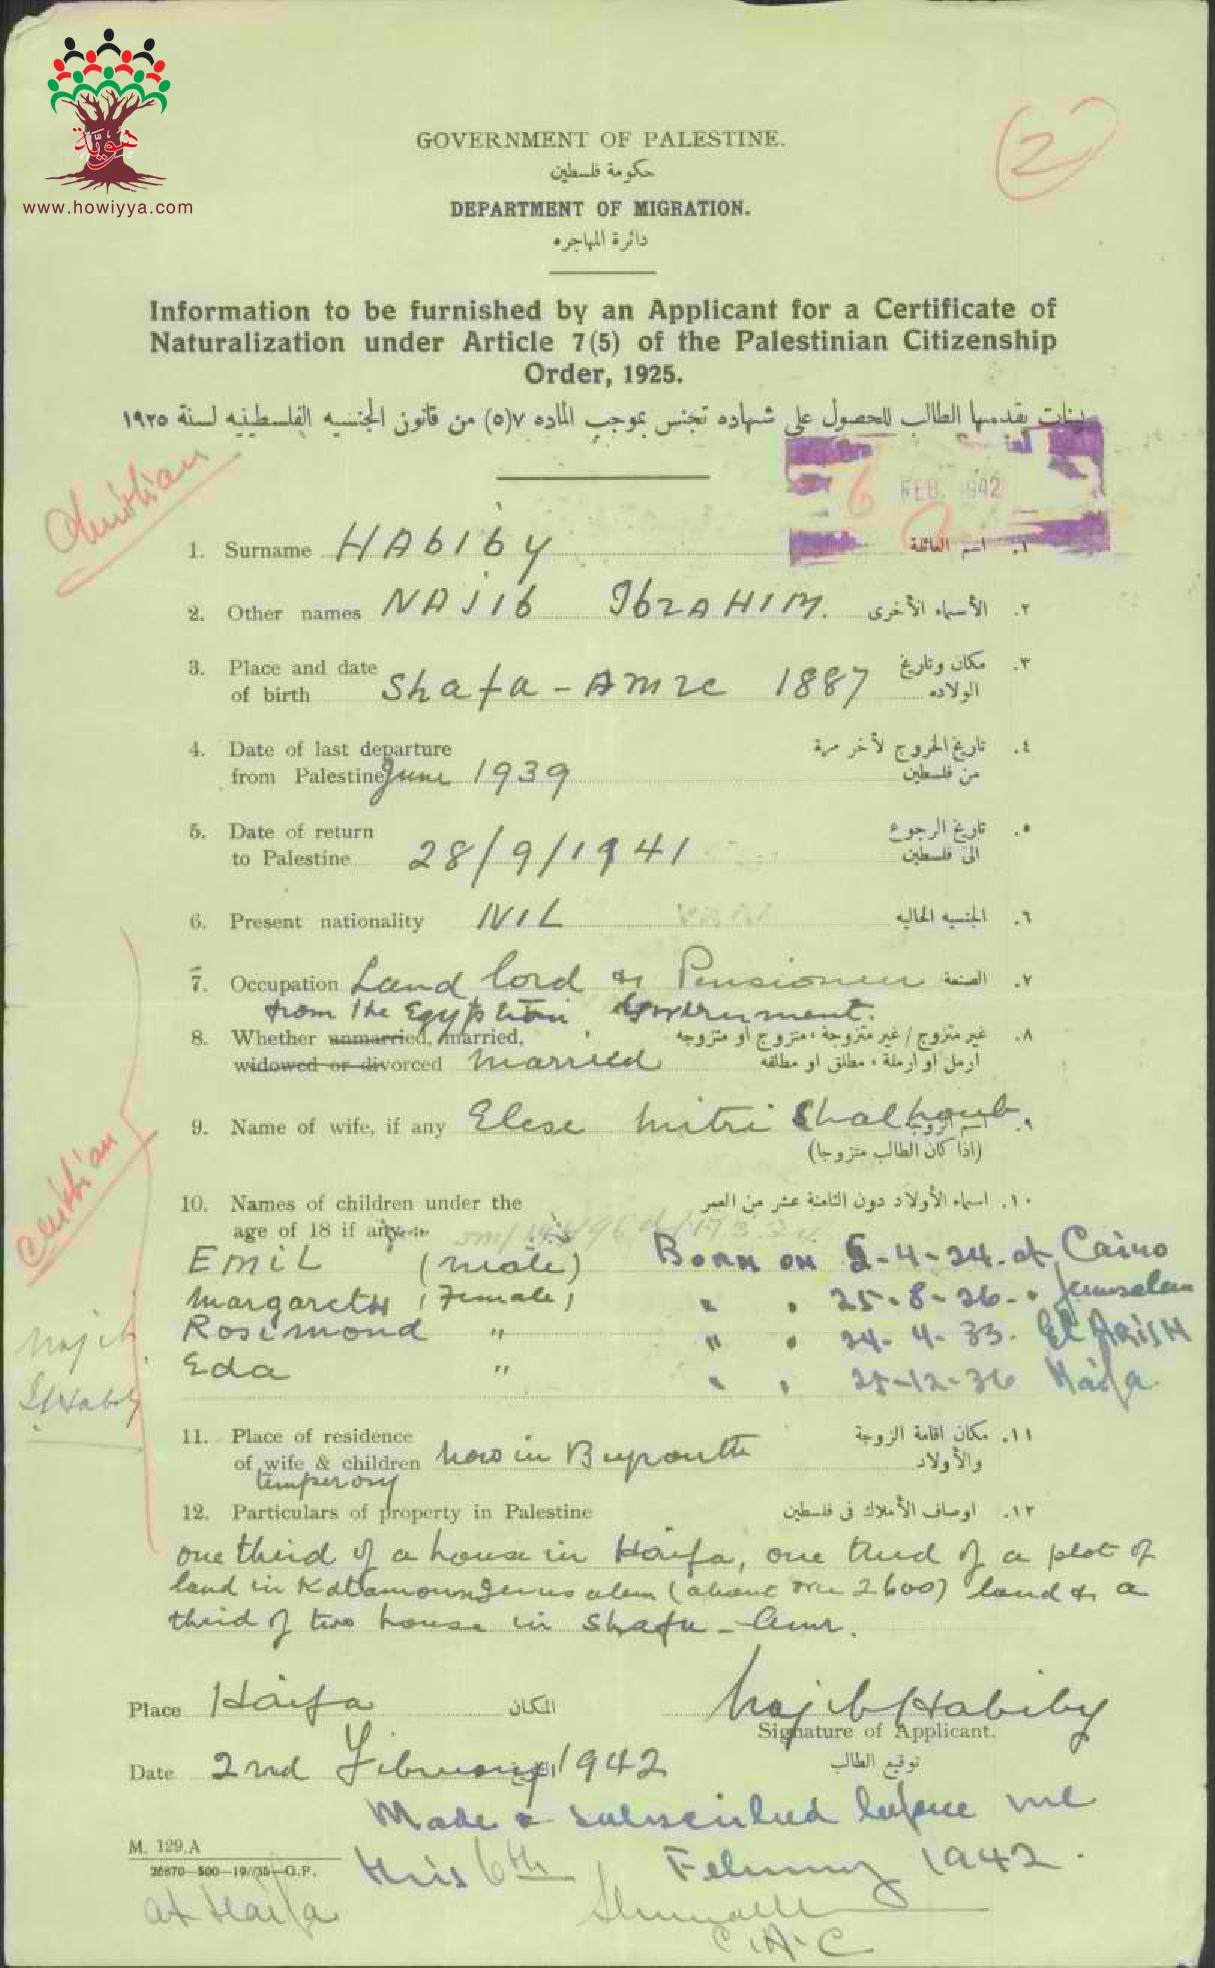 هويّة
www.howiyya.com
2
GOVERNMENT OF PALESTINE.
حكومة فلسطين
DEPARTMENT OF MIGRATION.
دائرة المهاجره
Information to be furnished by an Applicant for a Certificate of
Naturalization under Article 7(5) of the Palestinian Citizenship
Order, 1925.
بينات يقدمها الطالب للحصول على شهاده تجنس بموجب الماده ٧(٥) من قانون الجنسيه الفلسطينيه لسنة ١٩٢٥
Christian
6 FEB. 1942
1. Surname HAbIby ١. اسم العائلة
2. Other names NAJIb IbrAHIM. ٢. الأسماء الأخرى
3. Place and date ٣. مكان وتاريخ
of birth Shafa-Amre 1887 الولاده
4. Date of last departure ٤. تاريخ الخروج لأخر مرة
from Palestine June 1939 من فلسطين
5. Date of return ٥. تاريخ الرجوع
to Palestine 28/9/1941 الى فلسطين
6. Present nationality NIL ٦. الجنسيه الحاليه
7. Occupation Land lord & Pensioner ٧. الصنعة
from the Egyptian Government.
8. Whether unmarried, married, ٨. غير متزوج / غير متزوجة، متزوج او متزوجه
widowed or divorced married ارمل او ارملة، مطلق او مطلقه
9. Name of wife, if any Elese Mitri Shalhoub ٩. اسم الزوجة
(اذا كان الطالب متزوجا)
Christian
10. Names of children under the ١٠. اسماء الأولاد دون الثامنة عشر من العمر
age of 18 if any
EMIL (male) Born on 5-4-24. at Cairo
Margareth (Female) " " 25-8-26- " Jerusalem
Rosimond " " " 24-4-33- El ARISH
Eda " " " 25-12-36 Haifa
Najib
Habiby
11. Place of residence ١١. مكان اقامة الزوجة
of wife & children now in Beyrouth والأولاد
temperory
12. Particulars of property in Palestine ١٢. اوصاف الأملاك في فلسطين
one third of a house in Haifa, one third of a plot of
land in Katamoun Jerusalem (about 2600) land & a
third of two house in Shafa-Amr.
Place Haifa المكان Najib Habiby
Signature of Applicant.
توقيع الطالب
Date 2nd February 1942 التاريخ
Made & subscribed before me
this 6th February 1942.
M. 129.A
26870—500—19//35—G.P.
at Haifa